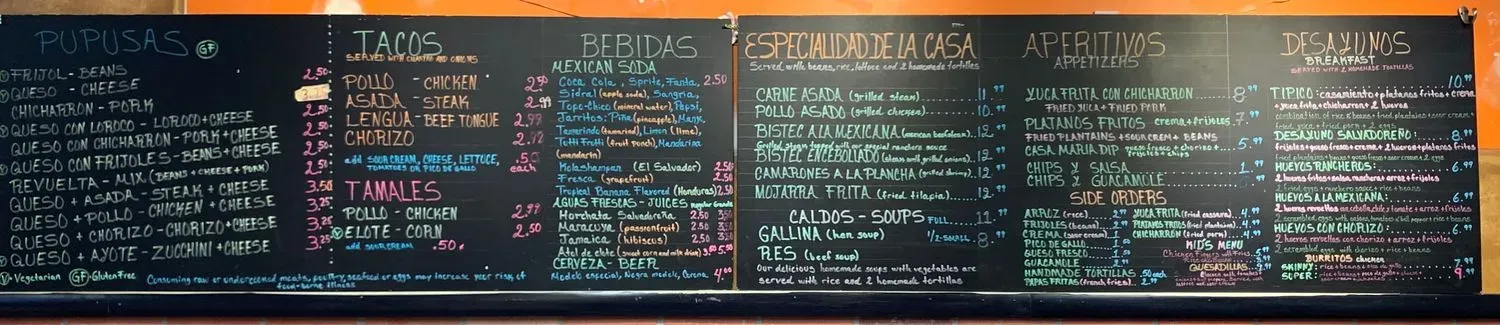 PUPUSAS GF
V FRIJOL - BEANS 2.50
V QUESO - CHEESE
CHICHARRON - PORK 2.50
V QUESO CON LOROCO - LOROCO + CHEESE 2.50
QUESO CON CHICHARRON - PORK + CHEESE 2.50
V QUESO CON FRIJOLES - BEANS + CHEESE 2.50
REVUELTA - MIX (BEANS + CHEESE + PORK) 2.50
QUESO + ASADA - STEAK + CHEESE 3.50
QUESO + POLLO - CHICKEN + CHEESE 3.25
QUESO + CHORIZO - CHORIZO + CHEESE 3.25
V QUESO + AYOTE - ZUCCHINI + CHEESE 3.25
V - Vegetarian GF - Gluten Free
Consuming raw or undercooked meats, poultry, seafood or eggs may increase your risk of
food-borne illness
TACOS
SERVED WITH CILANTRO AND ONIONS
POLLO - CHICKEN
ASADA - STEAK 2.99
LENGUA - BEEF TONGUE 2.99
CHORIZO 2.99
add SOUR CREAM, CHEESE, LETTUCE, .50
TOMATOES OR PICO DE GALLO each
TAMALES
POLLO - CHICKEN 2.99
V ELOTE - CORN 2.50
add SOUR CREAM .50¢
BEBIDAS
MEXICAN SODA
Coca Cola, Sprite, Fanta, 2.50
Sidral (apple soda), Sangria,
Topo-Chico (mineral water), Pepsi,
Jarritos: Piña (pineapple), Mango,
Tamarindo (tamarind), Limon (lime),
Tutti Frutti (fruit punch), Mandarina
(mandarin)
Kolashampan (El Salvador) 2.50
Fresca (grapefruit) 2.50
Tropical Banana Flavored (Honduras) 2.50
AGUAS FRESCAS - JUICES Regular Grande
Horchata Salvadoreña 2.50 3.50
Maracuya (passionfruit) 2.50
Jamaica (hibiscus) 2.50
Atol de elote (sweet corn and milk drink)
CERVEZA - BEER
Modelo especial, Negra modelo, Corona 4.00
ESPECIALIDAD DE LA CASA
Served with beans, rice, lettuce and 2 homemade tortillas
CARNE ASADA (grilled steak) 11.99
POLLO ASADO (grilled chicken) 10.99
BISTEC A LA MEXICANA 12.99
Grilled steak topped with our special ranchero sauce
BISTEC ENCEBOLLADO (steak with grilled onions) 12.99
CAMARONES A LA PLANCHA (grilled shrimp) 12.99
MOJARRA FRITA (fried tilapia) 12.99
CALDOS - SOUPS FULL 11.99
GALLINA (hen soup) 1/2-SMALL 8.99
RES (beef soup)
Our delicious homemade soups with vegetables are
served with rice and 2 homemade tortillas
APERITIVOS
APPETIZERS
YUCA FRITA CON CHICHARRON 8.99
FRIED YUCA + FRIED PORK
PLATANOS FRITOS crema + frijoles 7.99
FRIED PLANTAINS + SOUR CREAM + BEANS
CASA MARIA DIP queso fresco + chorizo + 5.99
frijoles + chips
CHIPS Y SALSA 1.99
CHIPS Y GUACAMOLE
SIDE ORDERS
ARROZ (rice) 2.99
FRIJOLES (beans) 2.99
CREMA (sour cream)
PICO DE GALLO
QUESO FRESCO
GUACAMOLE
HANDMADE TORTILLAS .50 each
PAPAS FRITAS (french fries) 2.99
YUCA FRITA (fried cassava) 4.99
PLATANOS FRITOS (fried plantains) 4.99
CHICHARRON (fried pork) 4.99
KIDS MENU
Chicken Fingers with Fries
QUESADILLAS
DESAYUNOS
BREAKFAST
SERVED WITH 2 HOMEMADE TORTILLAS
TIPICO: casamiento + platanos fritos + crema 10.99
+ yuca frita + chicharron + 2 huevos
DESAYUNO SALVADOREÑO: 8.99
frijoles + queso fresco + crema + 2 huevos + platanos fritos
HUEVOS RANCHEROS 6.99
2 huevos fritos + salsa ranchera + arroz + frijoles
2 fried eggs + ranchero sauce + rice + beans
HUEVOS A LA MEXICANA: 6.99
2 huevos revueltos con cebolla, chile y tomate + arroz + frijoles
HUEVOS CON CHORIZO: 6.99
2 huevos revueltos con chorizo + arroz + frijoles
2 scrambled eggs with chorizo + rice + beans
BURRITOS chicken
SKINNY: 7.99
SUPER: 9.99